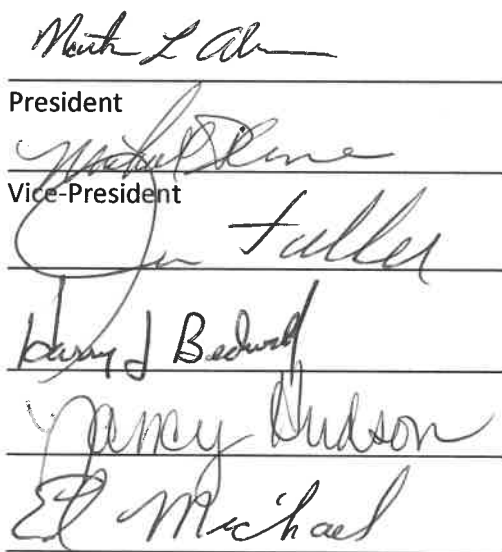 L
President
Michael
Vice-President
Jim Fuller
Harry J Bedwell
Nancy Hudson
Ed Michael